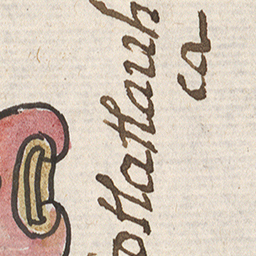 otlatlauh
ca